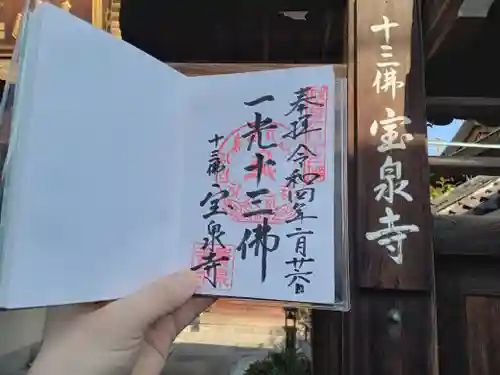 奉拝 令和四年二月廿六日
一光十三佛
十三佛 宝泉寺
十三佛 宝泉寺